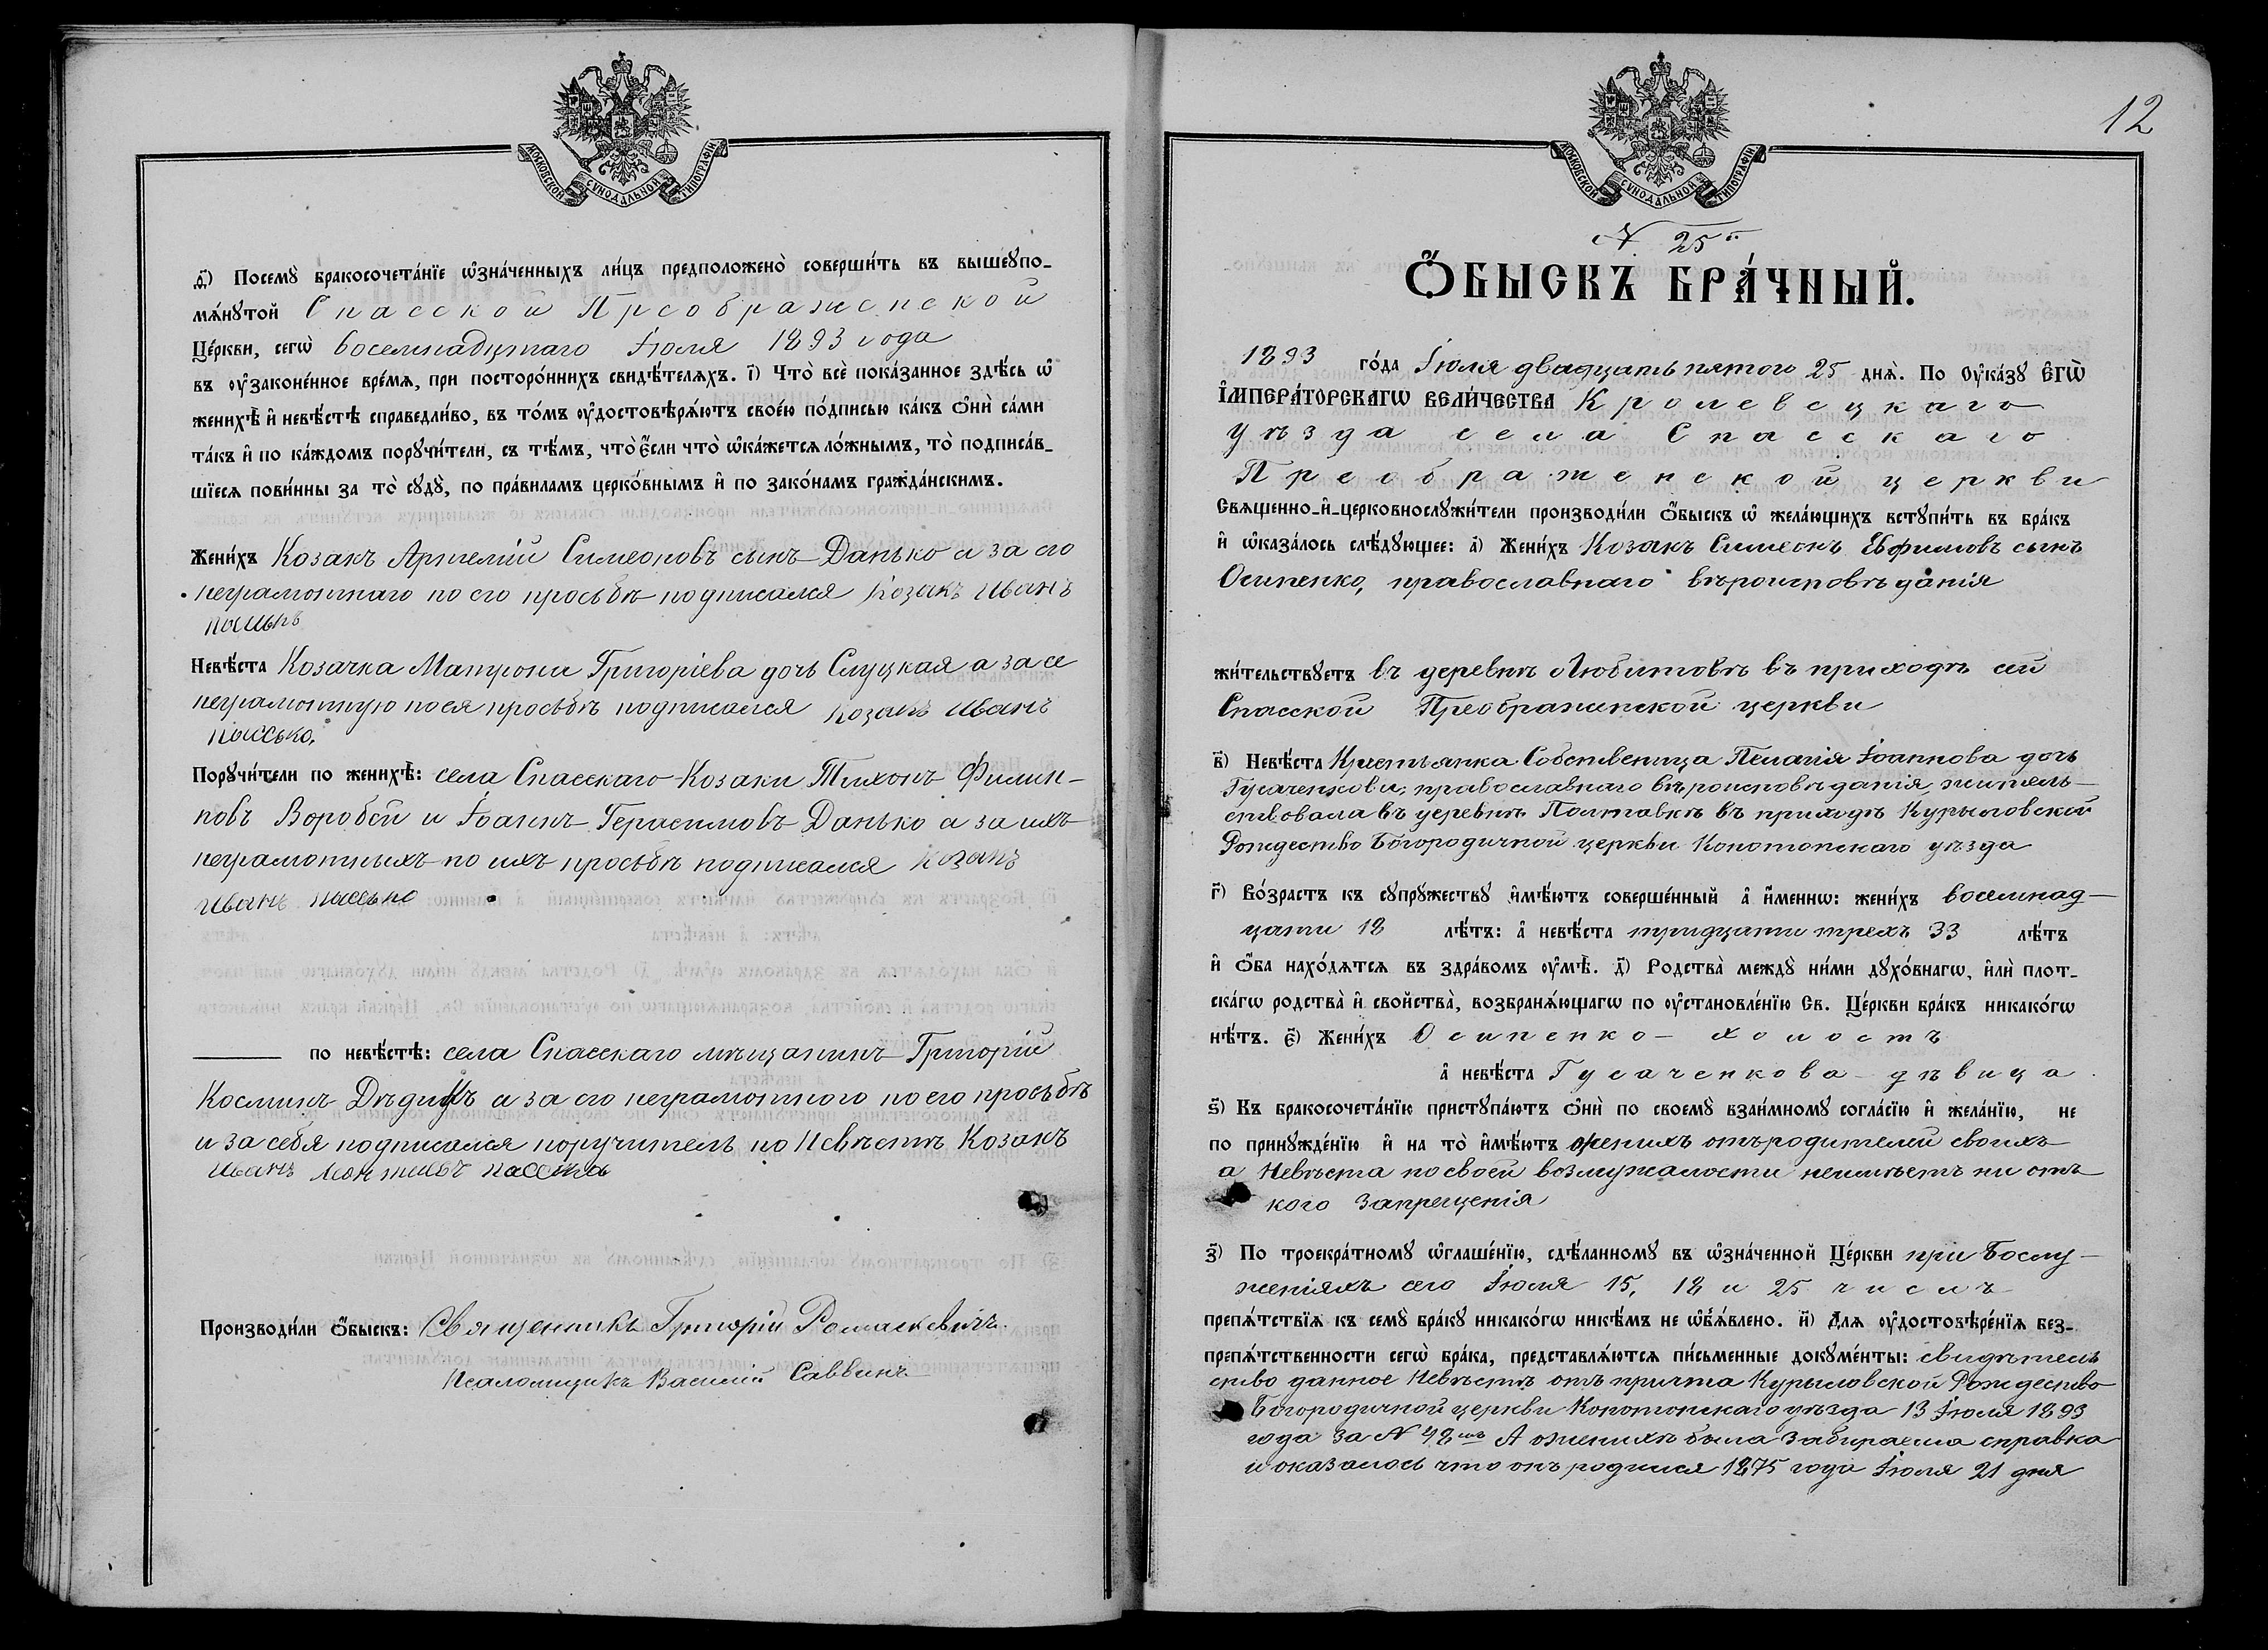 МОСКОВСКОЙ СѴНОДАЛЬНОЙ ТИПОГРАФІИ
ѳ҃) Посемꙋ̀ бракосочета́нїе ѡ҆зна́ченныхъ ли́цъ предположено̀ соверши́ть въ вышеꙋпо-
мѧ́нꙋтой Спасской Преображенской
Це́ркви, сегѡ̀ восемнадцатаго Іюля 1893 года
въ ᲂу҆законе́нное вре́мѧ, при посторо́ннихъ свидѣ́телѧхъ. і҃) Что̀ всѐ пока́занное здѣ́сь ѡ҆
женихѣ̀ и҆ невѣ́стѣ справедли́во, въ то́мъ ᲂу҆достовѣрѧ́ютъ свое́ю по́дписью ка́къ ѻ҆нѝ са́ми
та́къ и҆ по ка́ждомъ порꙋчи́тели, съ тѣ́мъ, что̀ є҆́сли что̀ ѡ҆ка́жетсѧ ло́жнымъ, то̀ подписа́в-
шїесѧ пови́нны за то̀ сꙋдꙋ̀, по пра́виламъ церко́внымъ и҆ по зако́намъ гражда́нскимъ.
Жени́хъ Козакъ Артемій Симеоновъ сынъ Данько а за его
неграмотнаго по его просьбѣ подписался Козакъ Иванъ
Невѣ́ста Козачка Матрона Григоріева дочь Слуцкая а за ее
неграмотную по ея просьбѣ подписался Козакъ Иванъ
Пассько.
Порꙋчи́тели по женихѣ̀: села Спасскаго Козаки Тихонъ Филип-
повъ Воробей и Іоаннъ Герасимовъ Данько а за ихъ
неграмотныхъ по ихъ просьбѣ подписался Козакъ
Иванъ Пассько
по невѣ́стѣ: села Спасскаго мѣщанинъ Григорій
Косминъ Дѣдикъ а за его неграмотного по его просьбѣ
и за себя подписался поручитель по Невѣстѣ Козакъ
Иванъ Пассько
Производи́ли ѻ҆́быскъ: Священникъ Григорій Ромаскевичъ
Псаломщикъ Василій Саввинъ
12
МОСКОВСКОЙ СѴНОДАЛЬНОЙ ТИПОГРАФІИ
N 25й
Ѻ҆́БЫСКЪ БРА́ЧНЫЙ.
1893 го́да Іюля двадцать пятого 25 днѧ̀. По ᲂу҆ка́зꙋ Є҆ГѠ̀
І҆МПЕРА́ТОРСКАГѠ ВЕЛИ́ЧЕСТВА Кролевецкаго
уѣзда села Спасскаго
Преображенской церкви
Свѧщенно-и҆-церковнослꙋжи́тели производи́ли ѻ҆́быскъ ѡ҆ жела́ющихъ встꙋпи́ть въ бра́къ
и҆ ѡ҆каза́лось слѣ́дꙋющее: а҃) Жени́хъ Козакъ Симеонъ Евфимовъ сынъ
Осипенко, православнаго вѣроисповѣданія
жи́тельствꙋетъ въ деревнѣ Любитовѣ въ приходѣ сей
Спасской Преображенской церкви
в҃) Невѣ́ста Крестьянка Собственица Пелагія Іоаннова дочь
Гусаченкова, православнаго вѣроисповѣданія, житель-
ствовала въ деревнѣ Полтавкѣ въ приходѣ Курыловской
Рождество Богородичной церкви Конотопскаго уѣзда
г҃) Во́зрастъ къ сꙋпрꙋ́жествꙋ и҆мѣ́ютъ соверше́нный а҆ и҆́меннѡ: жени́хъ восемнад-
цати 18 лѣ́тъ: а҆ невѣ́ста тридцати трехъ 33 лѣ́тъ
и҆ ѻ҆́ба нахо́дѧтсѧ въ здра́вомъ ᲂу҆мѣ̀. д҃) Родства̀ междꙋ̀ ни́ми дꙋхо́внагѡ, и҆лѝ плот-
ска́гѡ родства̀ и҆ свойства̀, возбранѧ́ющагѡ по ᲂу҆становле́нїю Св. Це́ркви бра́къ никако́гѡ
нѣ́тъ. є҃) Жени́хъ Осипенко - холостъ
а҆ невѣ́ста Гусаченкова - дѣвица.
ѕ҃) Къ бракосочета́нїю пристꙋпа́ютъ ѻ҆нѝ по своемꙋ̀ взаи́мномꙋ согла́сїю и҆ жела́нїю, не
по принꙋжде́нїю и҆ на то̀ и҆мѣ́ютъ женихъ отъ родителей своихъ
а Невѣста по своей возмужалости неимѣетъ ни отъ
кого запрещенія
з҃) По троекра́тномꙋ ѡ҆глаше́нїю, сдѣ́ланномꙋ въ ѡ҆зна́ченной Це́ркви при Бослу-
женіяхъ сего Іюля 15, 18 и 25 числъ
препѧ́тствїѧ къ семꙋ̀ бра́кꙋ никако́гѡ никѣ́мъ не ѡ҆б̾ѧ́влено. и҃) Длѧ ᲂу҆достовѣре́нїѧ без-
препѧ́тственности сегѡ̀ бра́ка, представлѧ́ютсѧ пи́сьменные докꙋме́нты: свидѣтель
ство данное Невѣстѣ отъ причта Курыловской Рождество
Богородичной церкви Конотопскаго уѣзда 13 Іюля 1893
года за N 48мъ А о женихѣ была забираема справка
и оказалось что онъ родился 1875 года Іюля 21 дня